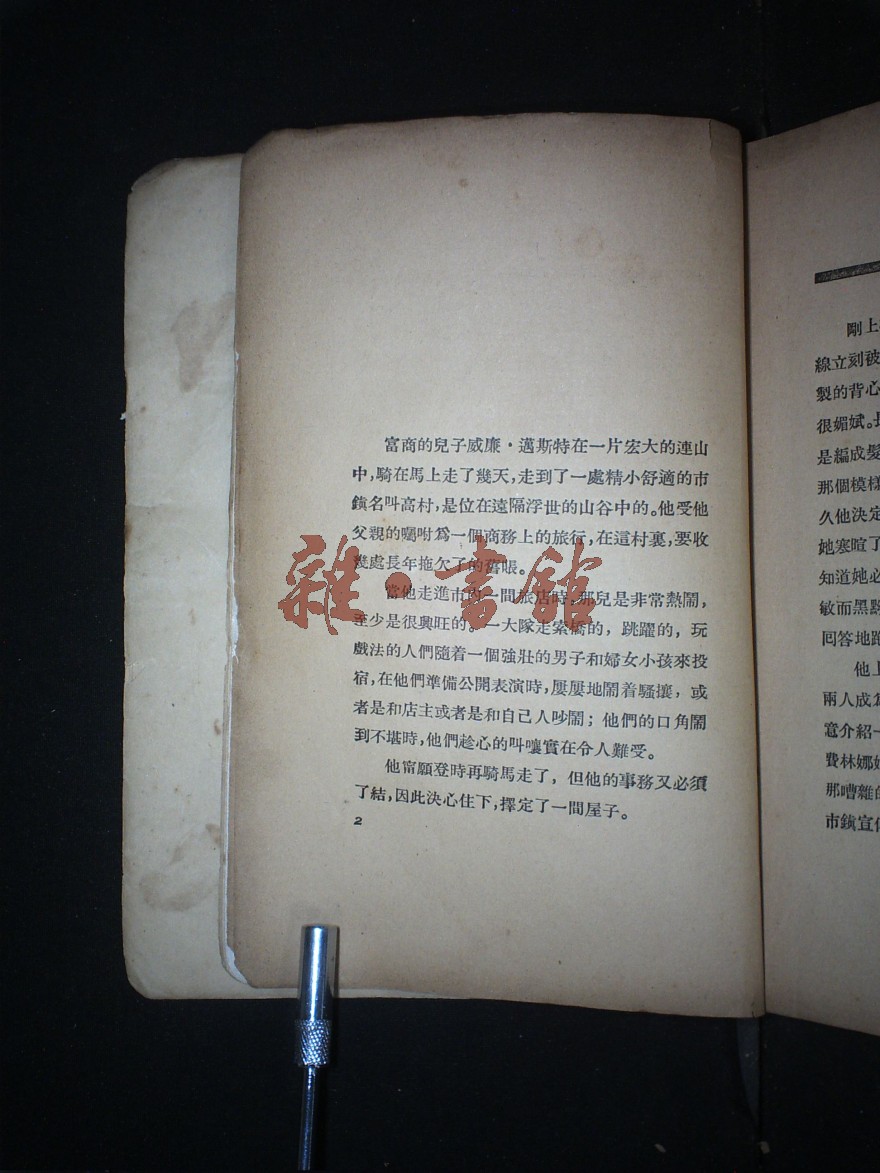 富商的兒子威廉·邁斯特在一片宏大的連山
中，騎在馬上走了幾天，走到了一處精小舒適的市
鎮名叫高村，是位在遠隔浮世的山谷中的。他受他
父親的囑咐爲一個商務上的旅行，在這村裏，要收
幾處長年拖欠了的舊賬。
當他走進市內一間旅店時，那兒是非常熱鬧，
至少是很興旺的。一大隊走索橋的，跳躍的，玩
戲法的人們隨着一個強壯的男子和婦女小孩來投
宿，在他們準備公開表演時，屢屢地鬧着騷攘，或
者是和店主或者是和自己人吵鬧；他們的口角鬧
到不堪時，他們趁心的叫嚷實在令人難受。
他甯願登時再騎馬走了，但他的事務又必須
了結，因此決心住下，擇定了一間屋子。
2
雜·書館
剛上
線立刻被
製的背心
很媚斌。
是編成髮
那個模樣
久他決定
她寒暄了
知道她必
敏而黑
回答地
他上
兩人成
意介紹
費林娜
那嘈雜的
市鎮宣